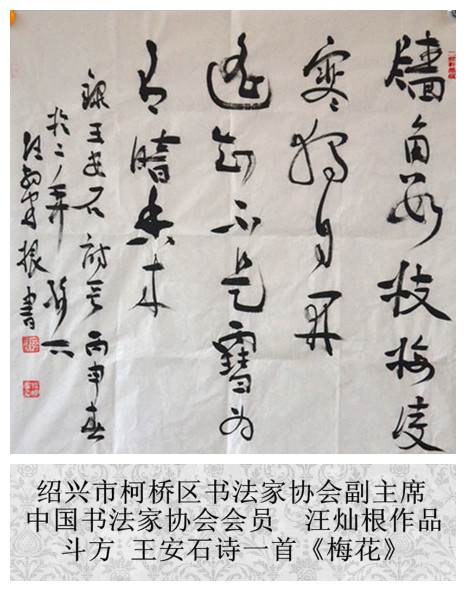 牆角数枝梅凌
寒独自開
遥知不是雪为
有暗香来
录王安石诗丙申春
於二弄
汪灿根書
绍兴市柯桥区书法家协会副主席
中国书法家协会会员 汪灿根作品
斗方 王安石诗一首《梅花》